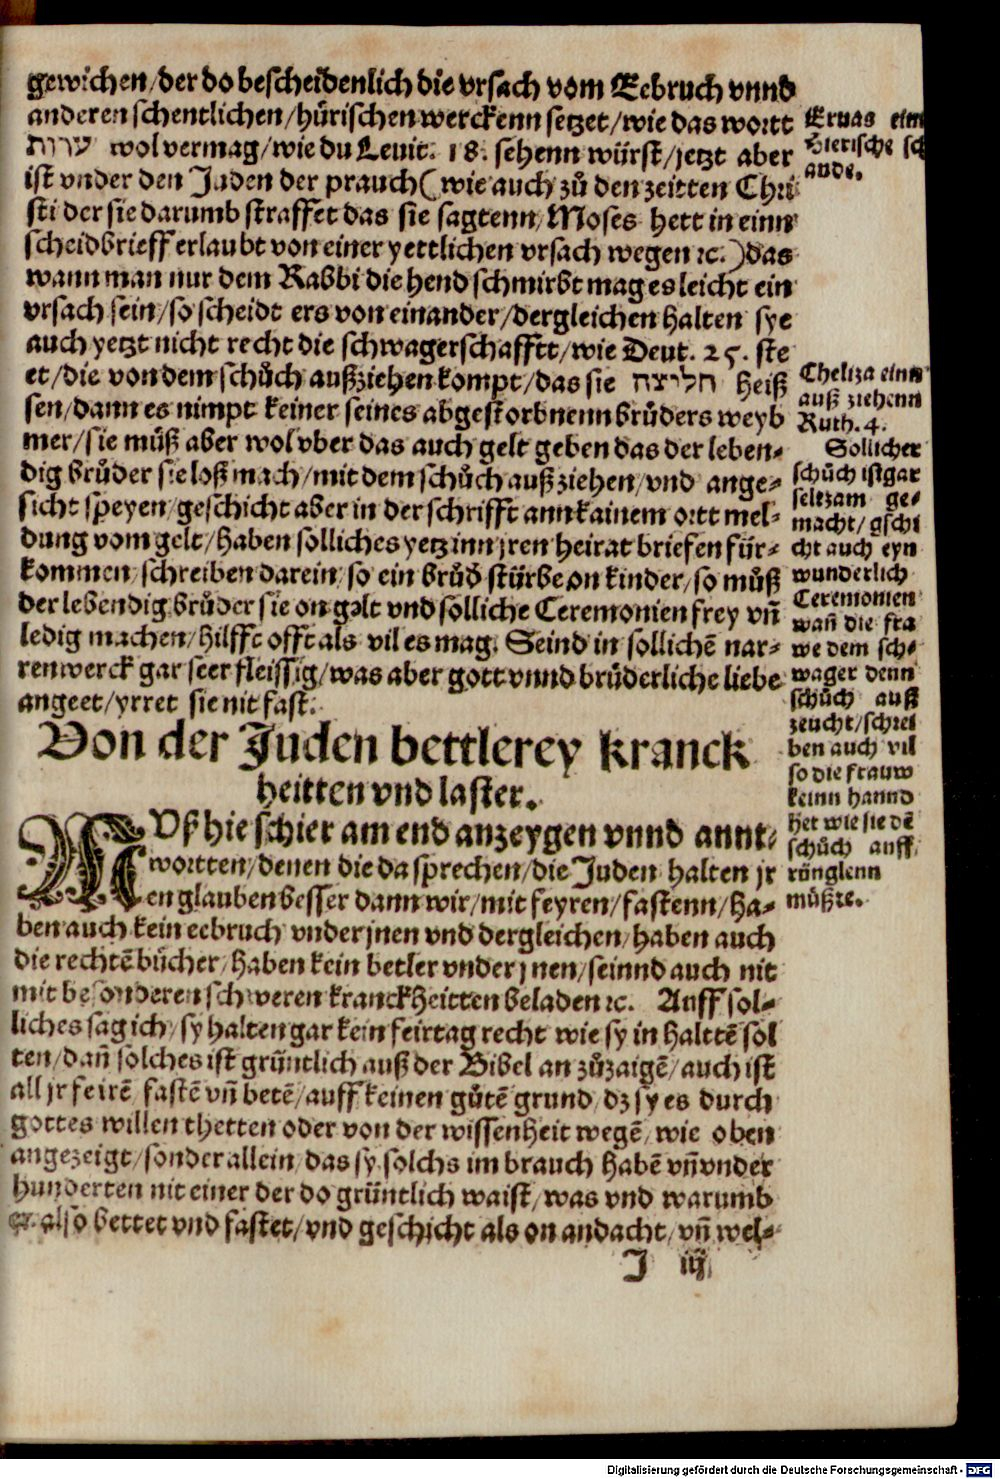 gewichen/der do bescheidenlich die vrsach vom Eebruch vnnd
anderen schentlichen/hůrischen werckenn setzet/wie das wortt
ערות wol vermag/wie du Leuit. 18. sehenn würst/jetzt aber
ist vnder den Juden der prauch(wie auch zů den zeitten Chri
sti der sie darumb straffet das sie sagtenn/Moses hett in einn
scheidbrieff erlaubt von einer yettlichen vrsach wegen ꝛc.)das
wann man nur dem Rabbi die hend schmirbt mag es leicht ein
vrsach sein/so scheidt ers von einander/dergleichen halten sye
auch yetzt nicht recht die schwagerschafft/wie Deut. 25. ste
et/die von dem schůch außziehen kompt/das sie חליצה heiß
sen/dann es nimpt keiner seines abgestorbnenn brůders weyb
mer/sie můß aber wol vber das auch gelt geben das der leben-
dig brůder sie loß mach/mit dem schůch außziehen/vnd ange-
sicht speyen/geschicht aber in der schrifft ann kainem ortt mel-
dung vom gelt/haben solliches yetz inn jren heirat briefen für-
kommen/schreiben darein/so ein brůd̄ stürbe on kinder/so můß
der lebendig brůder sie on gelt vnd solliche Ceremonien frey vn̄
ledig machen/hilfft offt als vil es mag. Seind in sollichē nar-
renwerck gar seer fleissig/was aber gott vnnd brůderliche liebe
angeet/yrret sie nit fast.
Von der Juden bettlerey kranck
heitten vnd laster.
MUß hie schier am end anzeygen vnnd annt-
wortten/denen die da sprechen/die Juden halten jr
en glauben besser dann wir/mit feyren/fastenn/ha-
ben auch kein eebruch vnder jnen vnd dergleichen/haben auch
die rechtē bůcher/haben kein betler vnder jnen/seinnd auch nit
mit besonderen schweren kranckheitten beladen ꝛc. Auff sol-
liches sag ich/sy halten gar kein feirtag recht wie sy in halttē sol
ten/dan̄ solches ist grüntlich auß der Bibel an zůzaigē/auch ist
all jr feirē fastē vn̄ betē/auff keinen gůtē grund/dz sy es durch
gottes willen thetten oder von der wissenheit wegē/wie oben
angezeigt/sonder allein/das sy solchs im brauch habē vn̄ vnder
hunderten nit einer der do grüntlich waist/was vnd warumb
er also bettet vnd fastet/vnd geschicht als on andacht/vn̄ wel-
J iiij
Eruas ein
Tierische sch
ande.
Cheliza einn
auß ziehenn
Ruth. 4.
Sollicher
schůch ist gar
seltzam ge-
macht/gschi
cht auch eyn
wunderlich
Ceremonien
wan̄ die fra
we dem sch-
wager denn
schůch auß
zeucht/schrei
ben auch vil
so die frauw
keinn hannd
het wie sie dē
schůch auff
ränglenn
můßte.
Digitalisierung gefördert durch die Deutsche Forschungsgemeinschaft - DFG